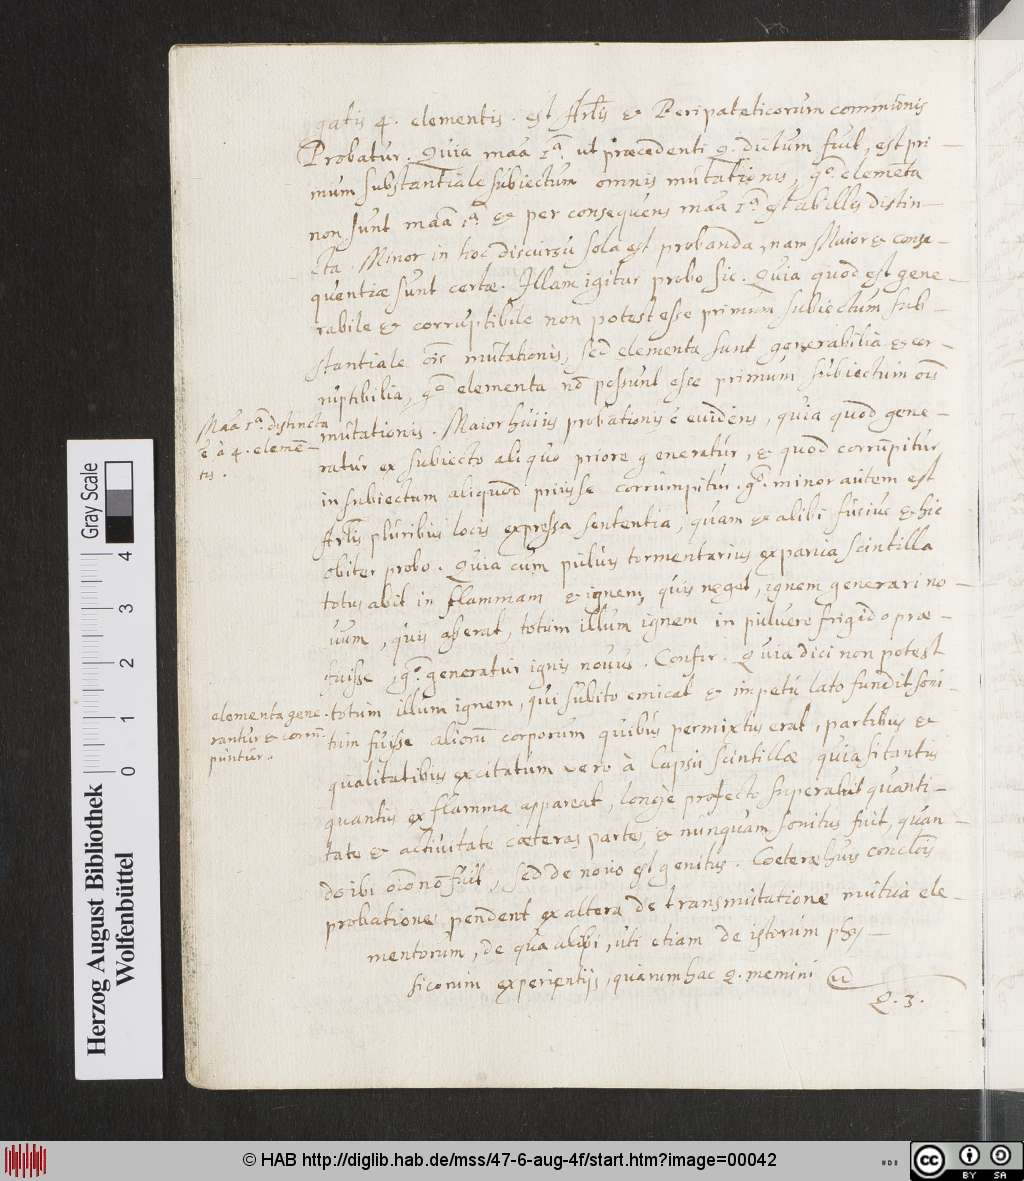 gatis 4. elementis. est Arlis & Peripateticorum commionis
Probatur. Quia maa 1ª ut præcedenti q. dictum fuit, est pri-
mum substantiale subiectum omnis mutationis, gº elementa
non sunt maã 1ª & per consequens maa 1ª est ab illis distin-
cta. Minor in hoc discursu sola est probanda, nam Maior & conse-
quentiæ sunt certæ. Illam igitur probo sic. Quia quod est gene-
rabile & corruptibile non potest esse primum subiectum sub-
stantiale ois mutationis, sed elementa sunt generabilia & cor-
ruptibilia, gº elementa nõ possunt esse primum subiectum ois
mutationis. Maior huius probationis ẽ evidens, quia quod gene-
Maa 1ª distincta
ẽ à 4. elemẽ-
tis.
ratur ex subiecto aliquo priore generatur, & quod corrumpitur
in subiectum aliquod prius se corrumpitur. gº. minor autem est
Arlis pluribus locis expressa sententia, quam & alibi fusius & hic
obiter probo. Quia cum puluis tormentarius ex parua scintilla
totus abit in flammam & ignem, quis neget, ignem generari no-
uum, quis asserat, totum illum ignem in puluere frigido præ-
fuisse, gº. generatur ignis novus. Confir. Quia dici non potest
elementa gene-
rantur & corrũ-
puntur.
totum illum ignem, qui subito emicat & impetu lato fundit soni-
tum fuisse aliorũ corporum quibus permixtus erat, partibus &
qualitatibus excitatum vero à lapsu scintillæ, quia si tantus
quantus ex flamma appareat, longe profecto superabit quanti-
tate & actiuitate cæteras partes, & nunquam sonitus fuit, quan-
do ibi oĩo nõ fuit, sed de novo est genitus. Coeteræ huius conclõis
probationes pendent ex altera de transmutatione mutua ele-
mentorum, de qua alibi, uti etiam de istorum phy-
sicorum experientijs, quarum hac q. memini
Q. 3.
Herzog August Bibliothek
Wolfenbüttel
Gray Scale
0 1 2 3 4
© HAB http://diglib.hab.de/mss/47-6-aug-4f/start.htm?image=00042
HAB
cc BY SA